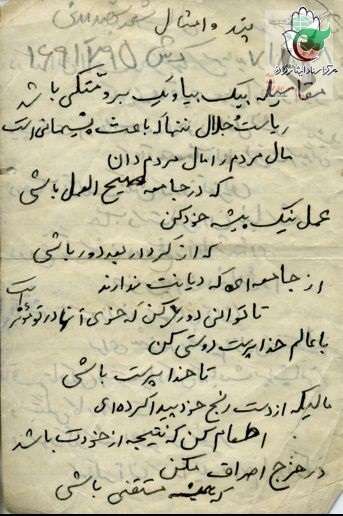 پند و امثال
مرکز اسناد ایثارگران
مقامیکه بیک بیا ویک برو متکی باشد
ریاست حلال ننما که باعث پشیمانی است
مال مردم را مال مردم دان
که در جامعه صحیح العمل باشی
عمل نیک پیشه خود کن
که از کردار بد دور باشی
از جامعه ای که دیانت ندارند
تا توانی دوری کن که خوی آنها در تو مؤثر است
با عالم خداپرست دوستی کن
تا خدا پرست باشی
مالیکه از دست رنج خود پیدا کرده ای
اطعام کن که نتیجه از خودت باشد
در خرج اصراف مکن
که همیشه مستغنی باشی